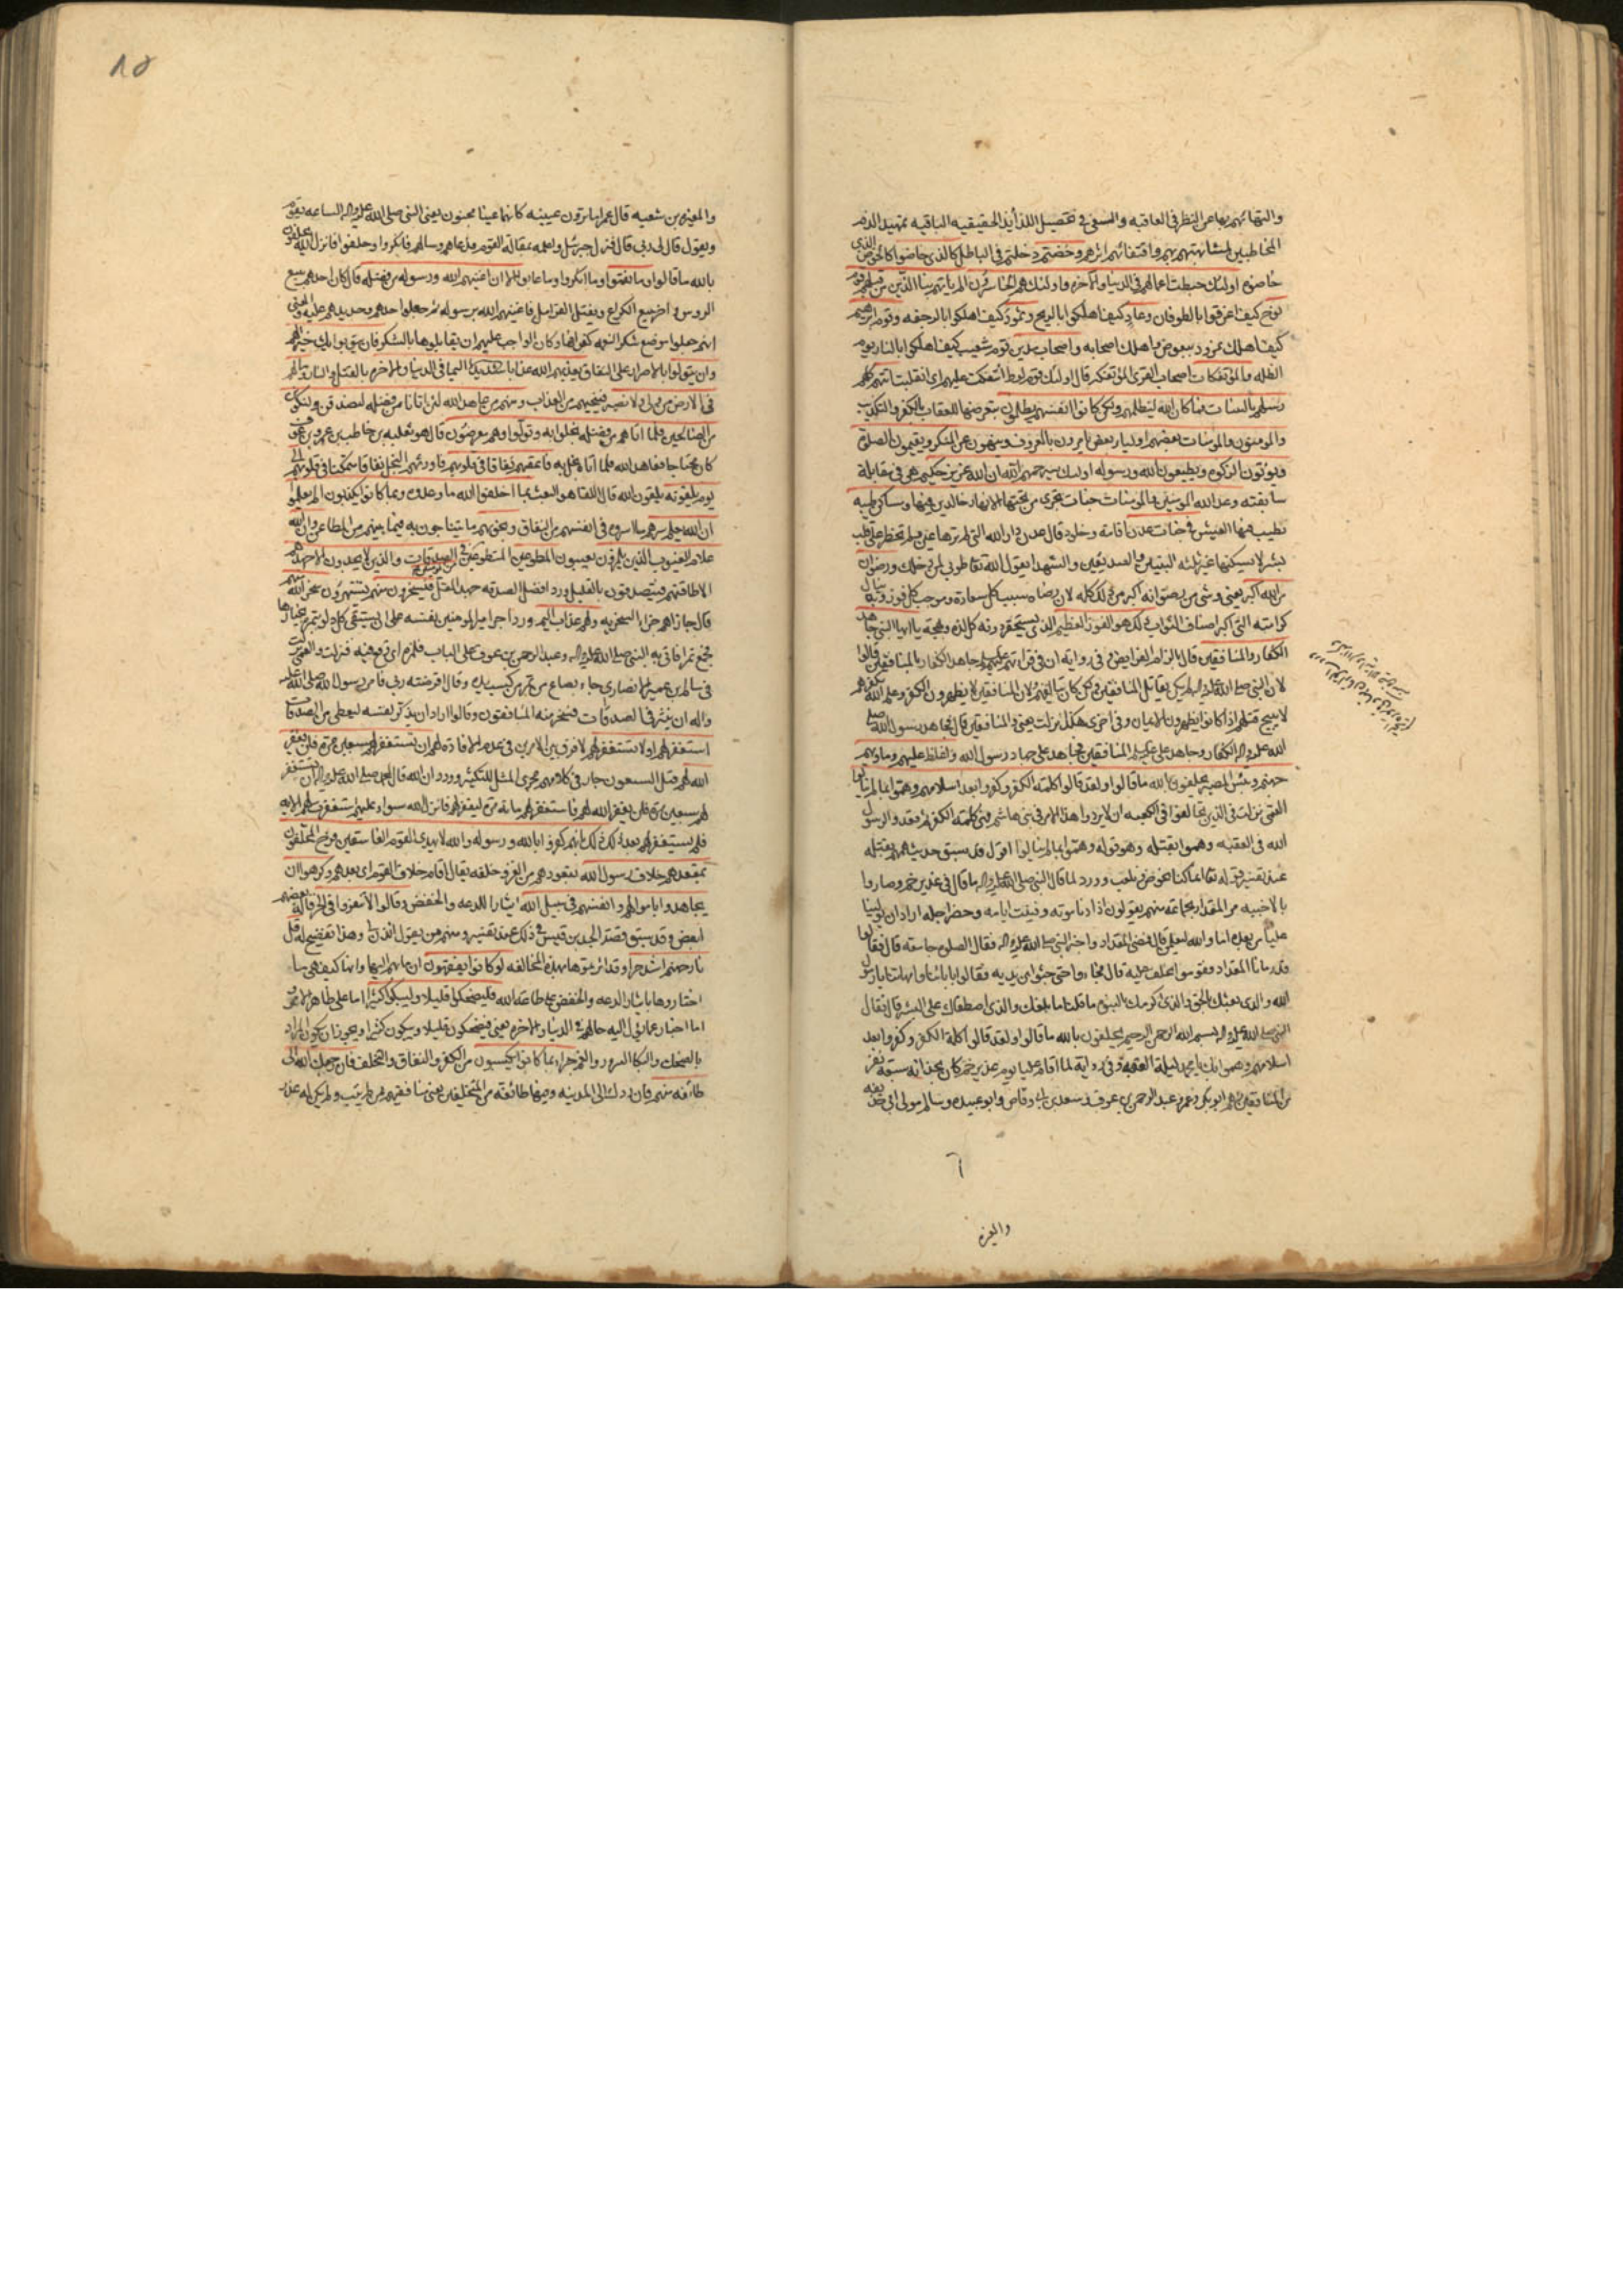 والتهائهم بها عن النظر في العاقبه والسعي في تحصيل اللذايذ الحقيقيه الباقيه تمهيد الذم
المخاطبين لمشابهتهم بهم واقتفائهم اثرهم وخضتم دخلتم في الباطل كالذي خاضوا كالخوض الذي
خاضوه اولئك حبطت اعمالهم في الدنيا والآخره واولئك هم الخاسرون الم ياتهم نبأ الذين من قبلهم قوم
نوح كيف اغرقوا بالطوفان وعاد كيف اهلكوا بالريح وثمود كيف اهلكوا بالرجفه وقوم ابرهيم
كيف اهلك نمرود ببعوض واهلك اصحابه واصحاب مدين قوم شعيب كيف اهلكوا بالنار يوم
الظله والمؤتفكات اصحاب القرى المؤتفكه قال اولئك قوم لوط ائتفكت عليهم اي انقلبت اتتهم كلهم
رسلهم بالبينات فما كان الله ليظلمهم ولكن كانوا انفسهم يظلمون بتعريضها للعقاب بالكفر والتكذيب
والمومنون والمومنات بعضهم اولياء بعض يامرون بالمعروف وينهون عن المنكر ويقيمون الصلوة
ويوتون الزكوه ويطيعون الله ورسوله اولئك سيرحمهم الله ان الله عزيز حكيم هي في مقابلة
سابقته وعد الله المومنين والمومنات جنات تجري من تحتها الانهار خالدين فيها ومساكن طيبه
تطيب فيها العيش في جنات عدن اقامة وخلود قال عدن دار الله التي لم ترها عين ولم تخطر على قلب
بشر لا يسكنها غير ثلثه النبيين والصديقين والشهدا يقول الله تعا طوبى لمن دخلك ورضوان
من الله اكبر يعني وشي من رضوانه اكبر من ذلك كله لان رضاه سبب كل سعادة وموجب كل فوز وبه ينال
كرامته التي اكبر اصناف الثواب ذلك هو الفوز العظيم الذي يستحقر دونه كل لذه وبهجة يا ايها النبي جاهد
الكفار والمنافقين قال بالزام الفرايض وفي رواية ان في قراءتهم عليهم السلام جاهد الكفار بالمنافقين قالوا
لان النبي صلى الله عليه واله لم يكن يقاتل المنافقين ولكن كان يتالفهم لان المنافقين لا يظهرون الكفر وعلم الله بكفرهم
لا يبيح قتلهم اذا كانوا يظهرون الايمان وفي اخرى هكذا نزلت يعني والمنافقين قال فجاهد رسول الله صلى
الله عليه واله الكفار وجاهد علي عليه السلام المنافقين فجاهد علي جهاد رسول الله واغلظ عليهم وماويهم
جهنم وبئس المصير يحلفون بالله ما قالوا ولقد قالوا كلمة الكفر وكفروا بعد اسلامهم وهموا بما لم ينالوا
القمي نزلت في الذين تحالفوا في الكعبه ان لا يردوا هذا الامر في بني هاشم فهي كلمة الكفر ثم قعدوا لرسول
الله في العقبه وهموا بقتله وهو قوله وهموا بما لم ينالوا اقول قد سبق حديثهم بقتله
عند تفسير قوله تعا انما كنا نخوض ونلعب وورد لما قال النبي صلى الله عليه واله ما قال في غدير خم وصاروا
بالاخبيه مر المقداد بجماعة منهم يقولون اذا دنا موته وفنيت ايامه وحضر اجله اراد ان يولينا
عليا من بعده اما والله ليعلمن قال فمضى المقداد واخبر النبي صلى الله عليه واله فقال الصلوة جامعة قال فقالوا
قد رمانا المقداد فقوموا نحلف عليه قال فجاءوا حتى جثوا بين يديه فقالوا بابائنا وامهاتنا يا رسول
الله والذي بعثك بالحق والذي كرمك بالنبوة ما قلنا ما بلغك والذي اصطفاك على البشر قال فقال
النبي صلى الله عليه واله بسم الله الرحمن الرحيم يحلفون بالله ما قالوا ولقد قالوا كلمة الكفر وكفروا بعد
اسلامهم وهموا بك يا محمد ليلة العقبه وفي رواية لما اقام عليا يوم غدير خم كان بحذائه سبعة نفر
من المنافقين وهم ابو بكر وعمر وعبد الرحمن بن عوف وسعد بن ابي وقاص وابو عبيده وسالم مولى ابي حذيفه
والمغيره
والمغيره بن شعبه قال عمر اما ترون عينيه كانهما عينا مجنون يعني النبي صلى الله عليه واله الساعه يقوم
ويقول قال لي ربي قال فنزل جبرئيل واعلمه بمقالة القوم فدعاهم وسالهم فانكروا وحلفوا فانزل الله يحلفون
بالله ما قالوا وما نقموا وما انكروا وما عابوا الا ان اغنيهم الله ورسوله من فضله قال كان احدهم يبيع
الروس واخر يبيع الكراع ويفتل القرامل فاغنيهم الله برسوله ثم جعلوا حدهم وحديدهم عليه والمعنى
انهم جعلوا موضع شكر النعمه كفرانها وكان الواجب عليهم ان يقابلوها بالشكر فان يتوبوا يك خيرا لهم
وان يتولوا بالاصرار على النفاق يعذبهم الله عذابا اليما في الدنيا والاخره بالقتل والنار وما لهم
في الارض من ولي ولا نصير فينجيهم من العذاب ومنهم من عاهد الله لئن اتانا من فضله لنصدقن ولنكونن
من الصالحين فلما اتاهم من فضله بخلوا به وتولوا وهم معرضون قال هو ثعلبه بن خاطب بن عمرو بن عوف
كان محتاجا فعاهد الله فلما اتاه بخل به فاعقبهم نفاقا في قلوبهم فاورثهم البخل نفاقا متمكنا في قلوبهم الى
يوم يلقونه يلقون الله قال اللقا هو البعث بما اخلفوا الله ما وعدوه وبما كانوا يكذبون الم يعلموا
ان الله يعلم سرهم ما اسروه في انفسهم من النفاق ونجويهم ما يتناجون به فيما بينهم من المطاعن وان الله
علام الغيوب الذين يلمزون يعيبون المطوعين المتطوعين من المومنين في الصدقات والذين لا يجدون الا جهدهم
الا طاقتهم فيتصدقون بالقليل ورد افضل الصدقه جهد المقل فيسخرون منهم يستهزؤن سخر الله منهم
قال جازاهم جزاء السخريه ولهم عذاب اليم ورد اجر امير المومنين نفسه على ان يستقي كل دلو بتمره يختارها
فجمع تمرا فاتى به النبي صلى الله عليه واله وعبد الرحمن بن عوف على الباب فلمزه اي وقع فيه فنزلت والقمي نزلت
في سالم بن عمير الانصاري جاء بصاع من تمر من كسب يده وقال اقرضته ربي فامر رسول الله صلى الله عليه
واله ان ينثر في الصدقات فسخر منه المنافقون وقالوا اراد ان يذكر نفسه ليعطى من الصدقات
استغفر لهم او لا تستغفر لهم لا فرق بين الامرين في عدم الافاده لهم ان تستغفر لهم سبعين مرة فلن يغفر
الله لهم قيل السبعون جار في كلامهم مجرى المثل للتكثير وورد ان الله قال لمحمد صلى الله عليه واله ان تستغفر
لهم سبعين مرة فلن يغفر الله لهم فاستغفر لهم مائة مرة ليغفر لهم فانزل الله سواء عليهم استغفرت لهم الايه
فلم يستغفر لهم بعد ذلك ذلك بانهم كفروا بالله ورسوله والله لا يهدي القوم الفاسقين فرح المخلفون
بمقعدهم خلاف رسول الله بقعودهم من الغزو خلفه يقال اقام خلاف القوم اي بعدهم وكرهوا ان
يجاهدوا باموالهم وانفسهم في سبيل الله ايثارا للدعه والخفض وقالوا لا تنفروا في الحر قاله بعضهم
لبعض وقد سبق قصة الجد بن قيس في ذلك عند تفسير ومنهم من يقول ائذن لي وهذا تفضيح له قل
نار جهنم اشد حرا وقد اثرتموها بهذه المخالفه لو كانوا يفقهون ان مابهم اليها وانها كيف هي ما
اختاروها بايثار الدعه والخفض على طاعة الله فليضحكوا قليلا وليبكوا كثيرا اما على ظاهر الامر و
اما اخبار عما يؤل اليه حالهم في الدنيا والاخره يعني فيضحكون قليلا ويبكون كثيرا ويجوز ان يكون المراد
بالضحك والبكا السرور والغم جزاء بما كانوا يكسبون من الكفر والنفاق والتخلف فان رجعك الله الى
طائفه منهم فان ردك الى المدينه وفيها طائفه من المتخلفين يعني منافقيهم ممن لم يتب ولم يكن له عذر